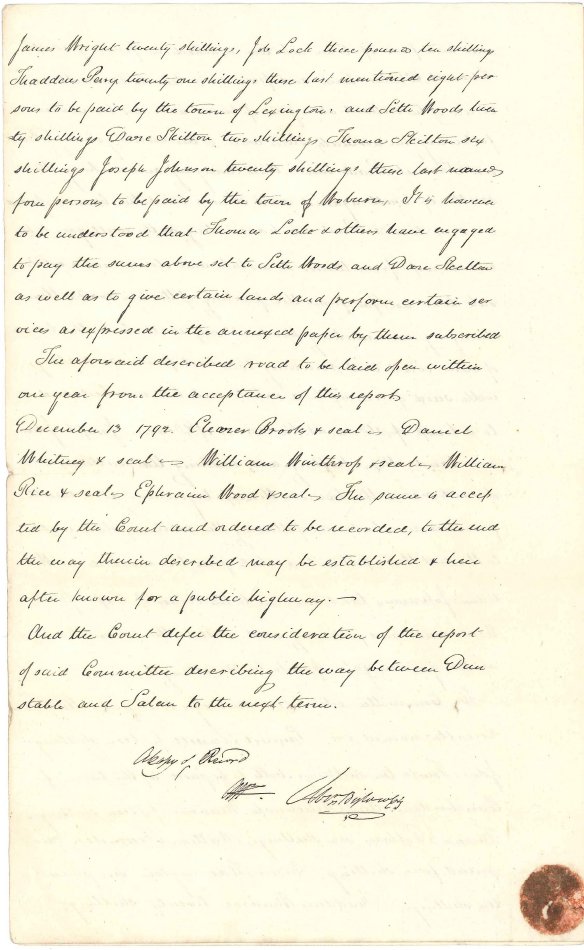 James Wright twenty shillings, Job Lock three pounds ten shillings
Thaddeus Perry twenty one shillings these last mentioned eight per
sons to be paid by the town of Lexington; and Seth Woods twen
ty shillings Dare Skilton two shillings Thomas Skilton six
shillings Joseph Johnson twenty shillings these last named
four persons to be paid by the town of Woburn, It is however
to be understood that Thomas Locke & others have engaged
to pay the sums above set to Seth Woods and Dare Skelton
as well as to give certain lands and perform certain ser
vices as expressed in the annexed paper by them subscribed
The aforesaid described road to be laid open within
one year from the acceptance of this report
December 13 1792. Eleazer Brooks & seal Daniel
Whitney & seal William Winthrop & seal William
Rice & seal Ephraim Wood & seal The same is accep
ted by the Court and ordered to be recorded, to the end
the way therein described may be established & here
after known for a public highway.
And the Court defer the consideration of the report
of said Committee describing the way between Dun
stable and Salem to the next term.
A copy of Record